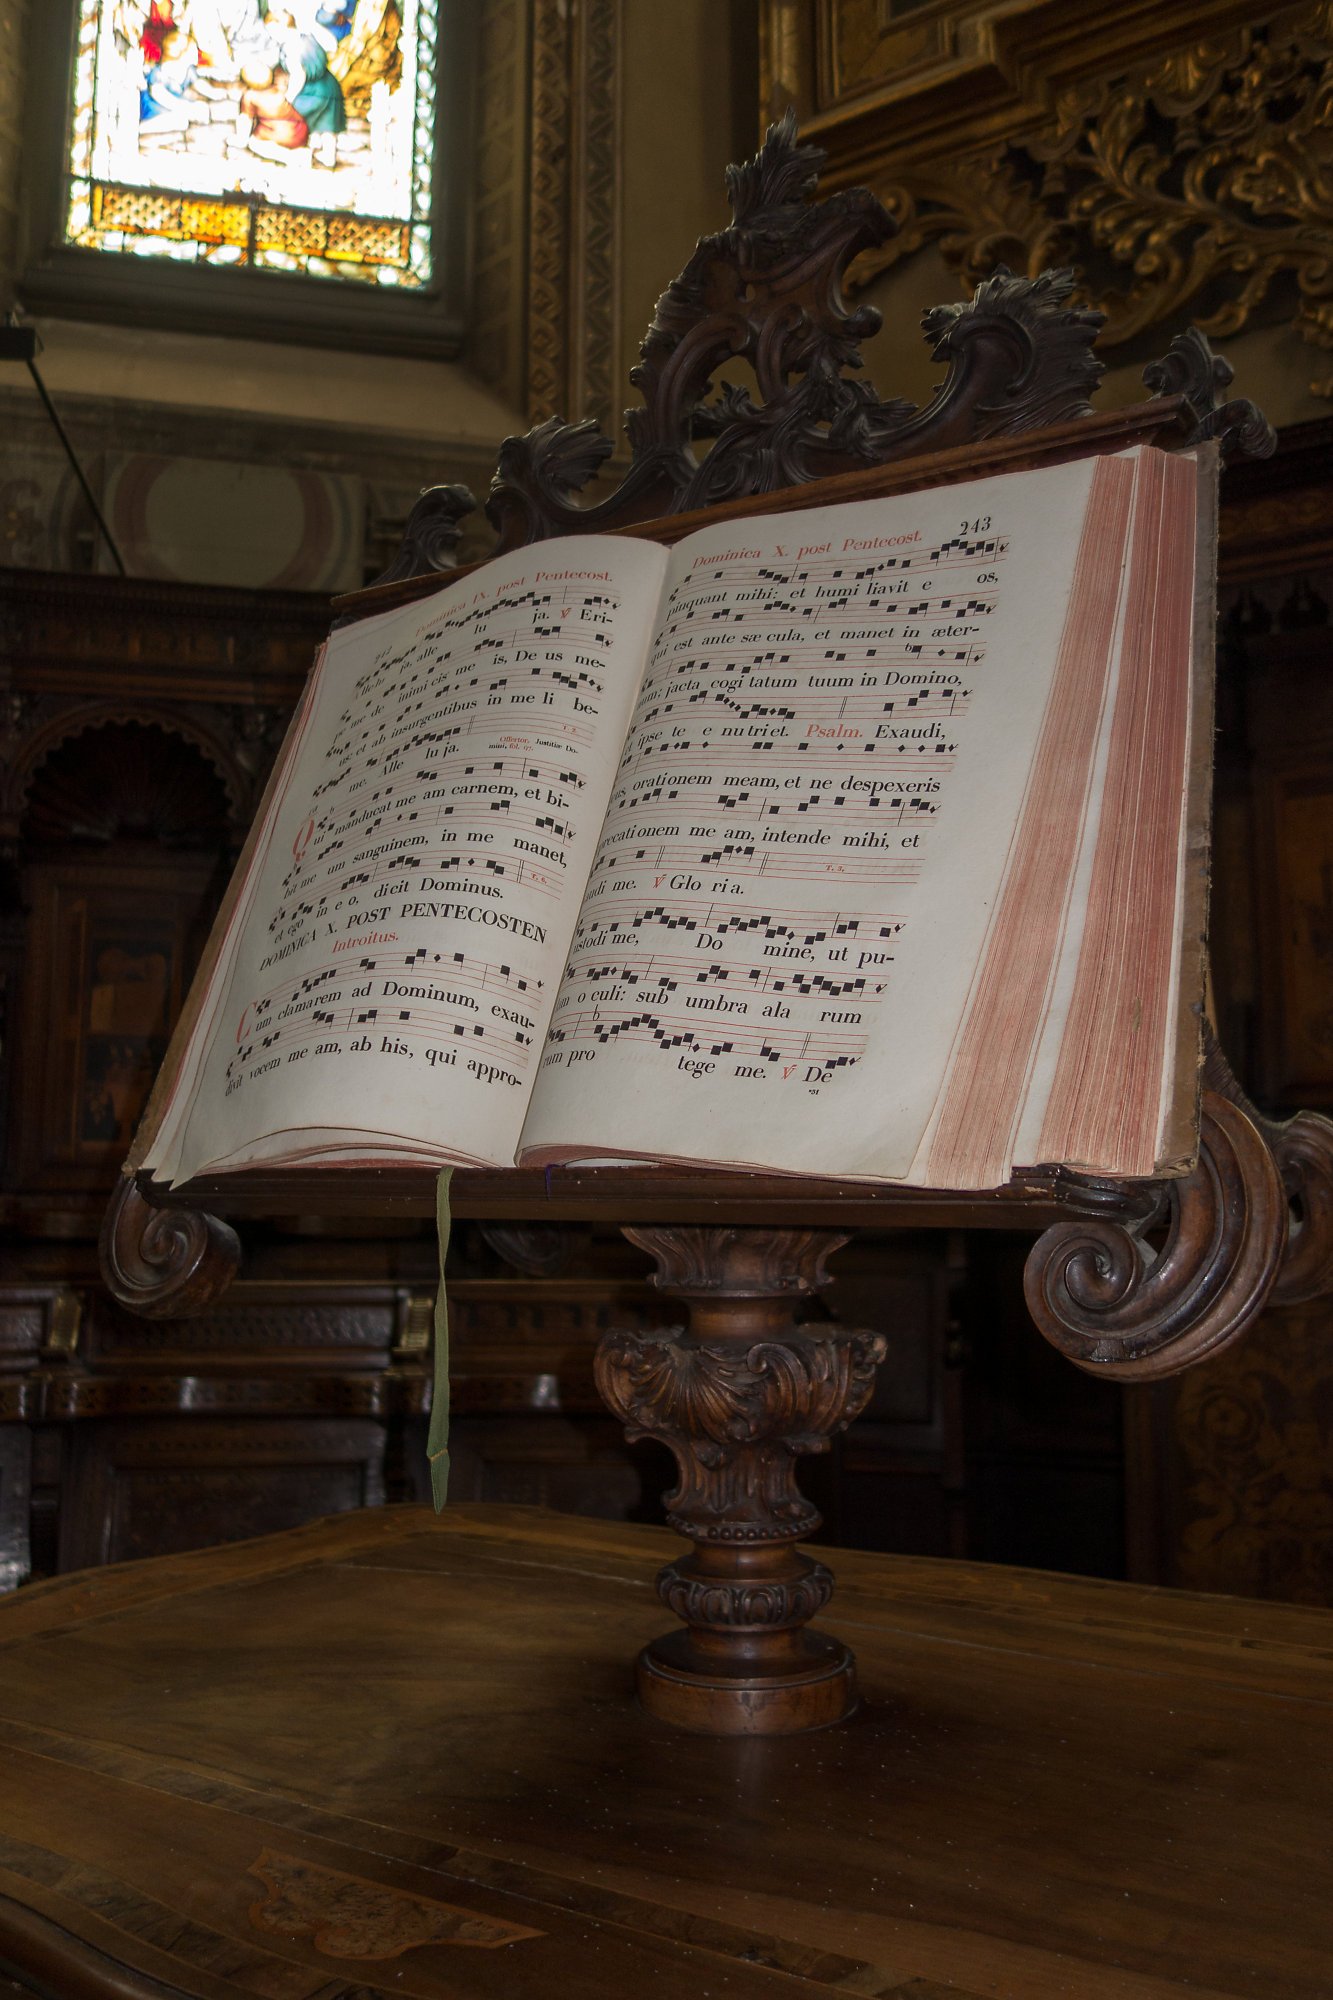 242 Dominica IX. post Pentecost.
lle lu ja, alle lu ja. ℣ Eri-
pe me de inimi cis me is, De us me-
us: et ab insurgentibus in me li be-
ra me. Alle lu ja. Offertor. Justitiæ Do-
mini, fol. T. 2.
Qui manducat me am carnem, et bi-
bit me um sanguinem, in me manet,
et ego in e o, dicit Dominus. T. 6.
DOMINICA X. POST PENTECOSTEN
Introitus.
Cum clamarem ad Dominum, exau-
divit vocem me am, ab his, qui appro-
Dominica X. post Pentecost. 243
pinquant mihi: et humi liavit e os,
qui est ante sæ cula, et manet in æter-
num: jacta cogi tatum tuum in Domino,
et ipse te e nu tri et. Psalm. Exaudi,
orationem meam, et ne despexeris
precati onem me am, intende mihi, et
audi me. ℣ Glo ri a. T. 3.
ustodi me, Do mine, ut pu-
o culi: sub umbra ala rum
rum pro tege me. ℣ De
*31